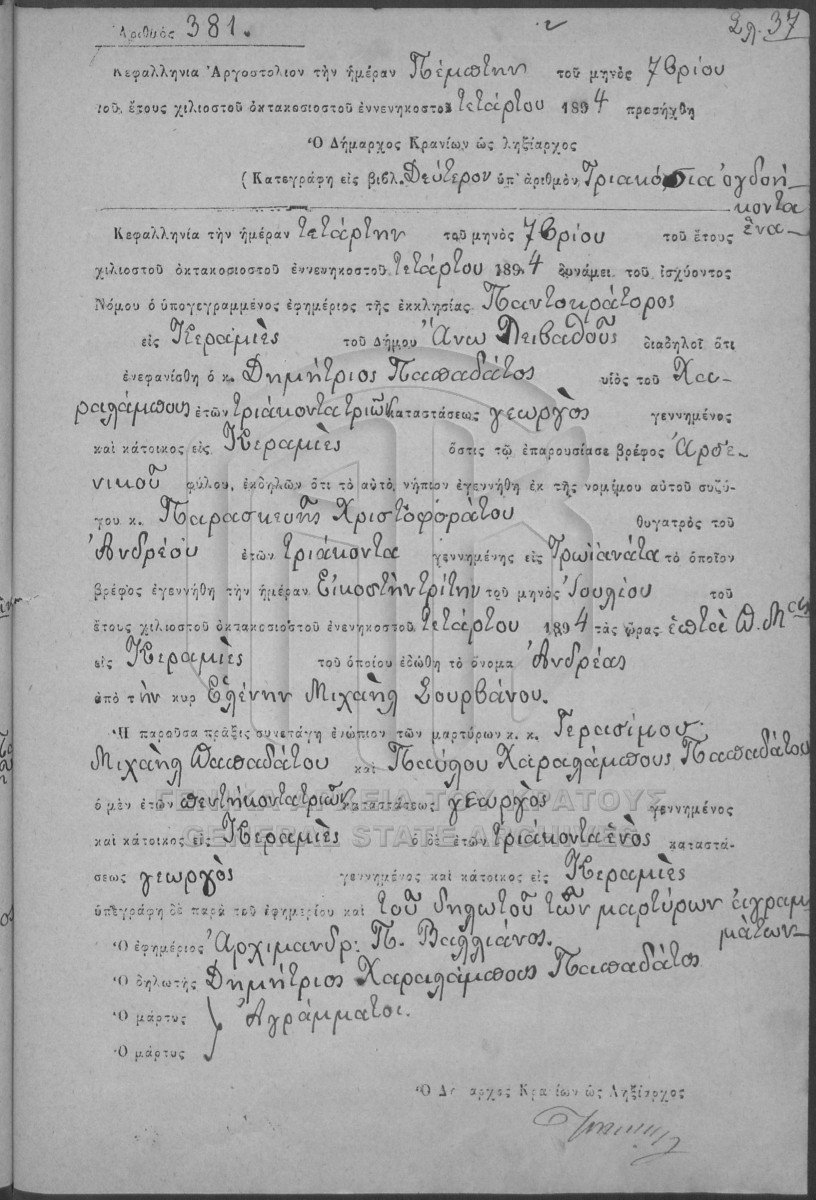 Ἀριθμὸς 381.
Σλ. 37
Κεφαλληνία Ἀργοστόλιον τὴν ἡμέραν Πέμπτην τοῦ μηνὸς 7βρίου
τοῦ ἔτους χιλιοστοῦ ὀκτακοσιοστοῦ ἐννενηκοστοῦ τετάρτου 1894 προσήχθη
Ὁ Δήμαρχος Κρανίων ὡς ληξίαρχος
(Κατεγράφη εἰς βιβλ. Δεύτερον ὑπ' ἀριθμὸν Τριακόσια ὀγδοή-
κοντα
ἕνα-
Κεφαλληνία τὴν ἡμέραν τετάρτην τοῦ μηνὸς 7βρίου τοῦ ἔτους
χιλιοστοῦ ὀκτακοσιοστοῦ ἐννενηκοστοῦ τετάρτου 1894 δυνάμει τοῦ ἰσχύοντος
Νόμου ὁ ὑπογεγραμμένος ἐφημέριος τῆς ἐκκλησίας Παντοκράτορος
εἰς Κεραμιὲς τοῦ Δήμου Ἄνω Λειβαθοῦς διαδηλοῖ ὅτι
ἐνεφανίσθη ὁ κ. Δημήτριος Παπαδάτος υἱὸς τοῦ Χα-
ραλάμπους ἐτῶν τριάκοντα τριῶν καταστάσεως γεωργὸς γεννημένος
καὶ κάτοικος εἰς Κεραμιὲς ὅστις τῷ ἐπαρουσίασε βρέφος Ἀρσε-
νικοῦ φύλου, ἐκδηλῶν ὅτι τὸ αὐτὸ νήπιον ἐγεννήθη ἐκ τῆς νομίμου αὐτοῦ συζύ-
γου κ. Παρασκευῆς Χριστοφοράτου θυγατρὸς τοῦ
Ἀνδρέου ἐτῶν τριάκοντα γεννημένης εἰς Τρωϊανάτα τὸ ὁποῖον
βρέφος ἐγεννήθη τὴν ἡμέραν Εἰκοστὴν τρίτην τοῦ μηνὸς Ἰουλίου τοῦ
ἔτους χιλιοστοῦ ὀκτακοσιοστοῦ ἐνενηκοστοῦ τετάρτου 1894 τὰς ὥρας ἑπτὰ Π. Μ.
εἰς Κεραμιὲς τοῦ ὁποίου ἐδώθη τὸ ὄνομα Ἀνδρέας
ἀπὸ τὴν κυρ Ἑλένην Μιχαὴλ Σουρβάνου.
Ἡ παροῦσα πρᾶξις συνετάγη ἐνώπιον τῶν μαρτύρων κ. κ. Γερασίμου
Μιχαὴλ Παπαδάτου καὶ Παύλου Χαραλάμπους Παπαδάτου
ὁ μὲν ἐτῶν πεντήκοντα τριῶν καταστάσεως γεωργὸς γεννημένος
καὶ κάτοικος εἰς Κεραμιὲς ὁ δὲ ἐτῶν τριάκοντα ἑνὸς καταστά-
σεως γεωργὸς γεννημένος καὶ κάτοικος εἰς Κεραμιὲς
ὑπεγράφη δὲ παρὰ τοῦ ἐφημερίου καὶ τοῦ δηλωτοῦ τῶν μαρτύρων ἀγραμ-
μάτων-
Ὁ ἐφημέριος Ἀρχιμανδρ: Π. Βαλλιάνος.
Ὁ δηλωτὴς Δημήτριος Χαραλάμπους Παπαδάτος
Ὁ μάρτυς } Ἀγράμματοι.
Ὁ μάρτυς
Ὁ Δήμαρχος Κρανίων ὡς Ληξίαρχος
ΓΕΝΙΚΑ ΑΡΧΕΙΑ ΤΟΥ ΚΡΑΤΟΥΣ
GENERAL STATE ARCHIVES